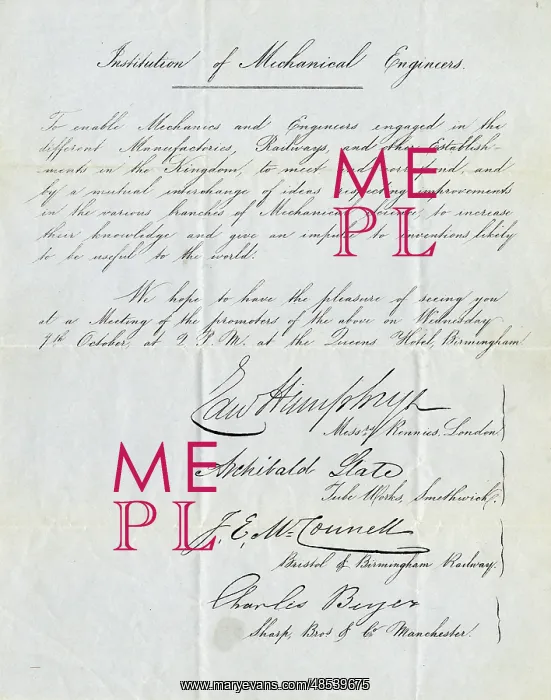 Institution of Mechanical Engineers.
To enable Mechanics and Engineers engaged in the
different Manufactories, Railways, and other Establish-
ments in the Kingdom, to meet and correspond, and
by a mutual interchange of ideas respecting improvements
in the various branches of Mechanical Science, to increase
their knowledge and give an impulse to inventions likely
to be useful to the world.
We hope to have the pleasure of seeing you
at a Meeting of the promoters of the above on Wednesday
7th October, at 2 P.M. at the Queens Hotel, Birmingham
Edw Humphrys
Messrs Rennies, London
Archibald Slate
Tube Works, Smethwick.
J. E. McConnell
Bristol & Birmingham Railway.
Charles Beyer
Sharp, Bros & Co Manchester.
ME
PL
ME
PL
www.maryevans.com/48539675